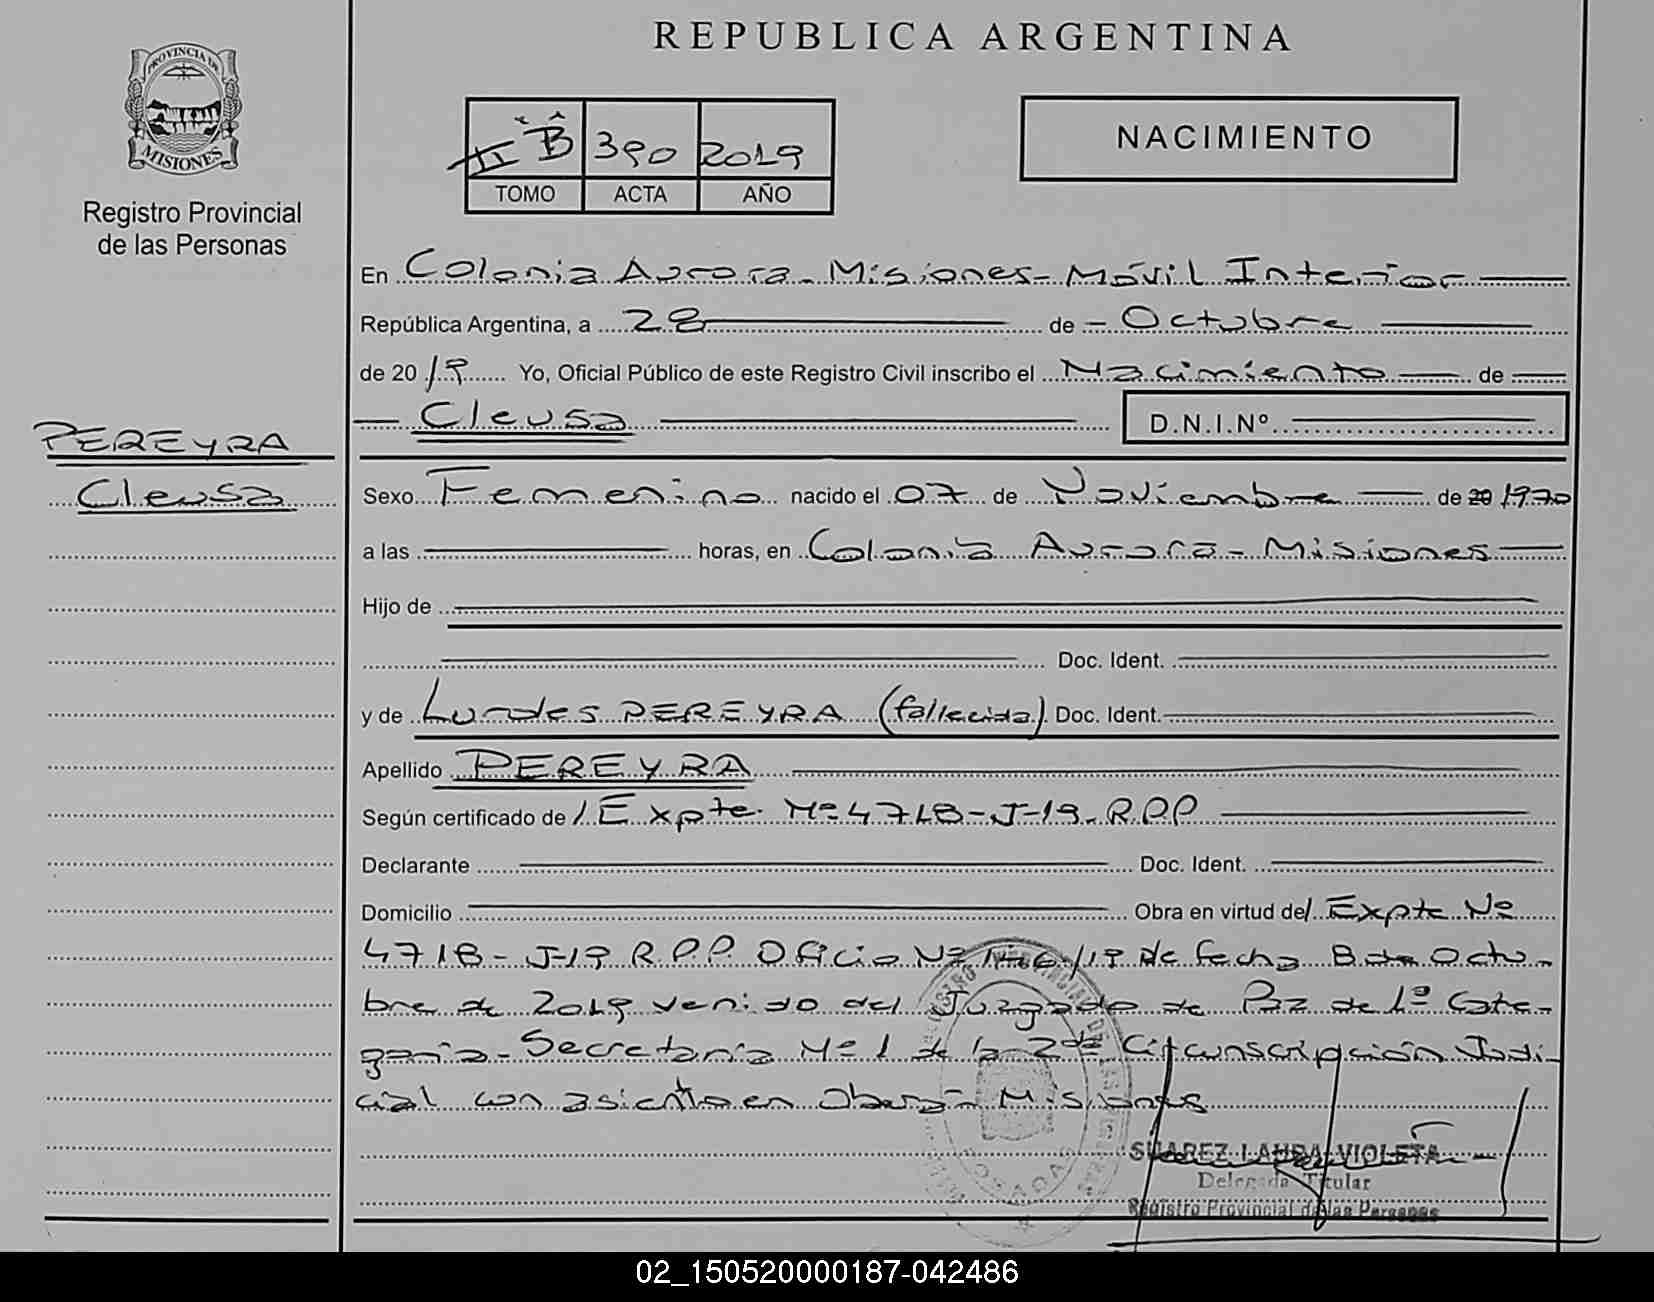 REPUBLICA ARGENTINA
PROVINCIA DE
MISIONES
Registro Provincial
de las Personas
II "B" 390 2019
TOMO ACTA AÑO
NACIMIENTO
En Colonia Aurora - Misiones - Móvil Interior
República Argentina, a 28 de Octubre
de 20 19 Yo, Oficial Público de este Registro Civil inscribo el Nacimiento de
Cleusa D.N.I.Nº
PEREYRA
Cleusa
Sexo Femenino nacido el 07 de Noviembre de 20 1970
a las horas, en Colonia Aurora - Misiones
Hijo de
Doc. Ident.
y de Lurdes PEREYRA (fallecida) Doc. Ident.
Apellido PEREYRA
Según certificado de / Expte. Nº 4718-J-19-RPP
Declarante Doc. Ident.
Domicilio Obra en virtud de/ Expte Nº
4718-J-19 RPP Oficio Nº /19 de fecha 8 de Octu-
bre de 2019 venido del Juzgado de Paz de 1º Cate-
goria - Secretaría Nº 1 de la 2da Circunscripción Judi-
cial con asiento en Oberá - Misiones
SUAREZ LAURA VIOLETA
Delegada Titular
Registro Provincial de las Personas
POSADAS
02_150520000187-042486